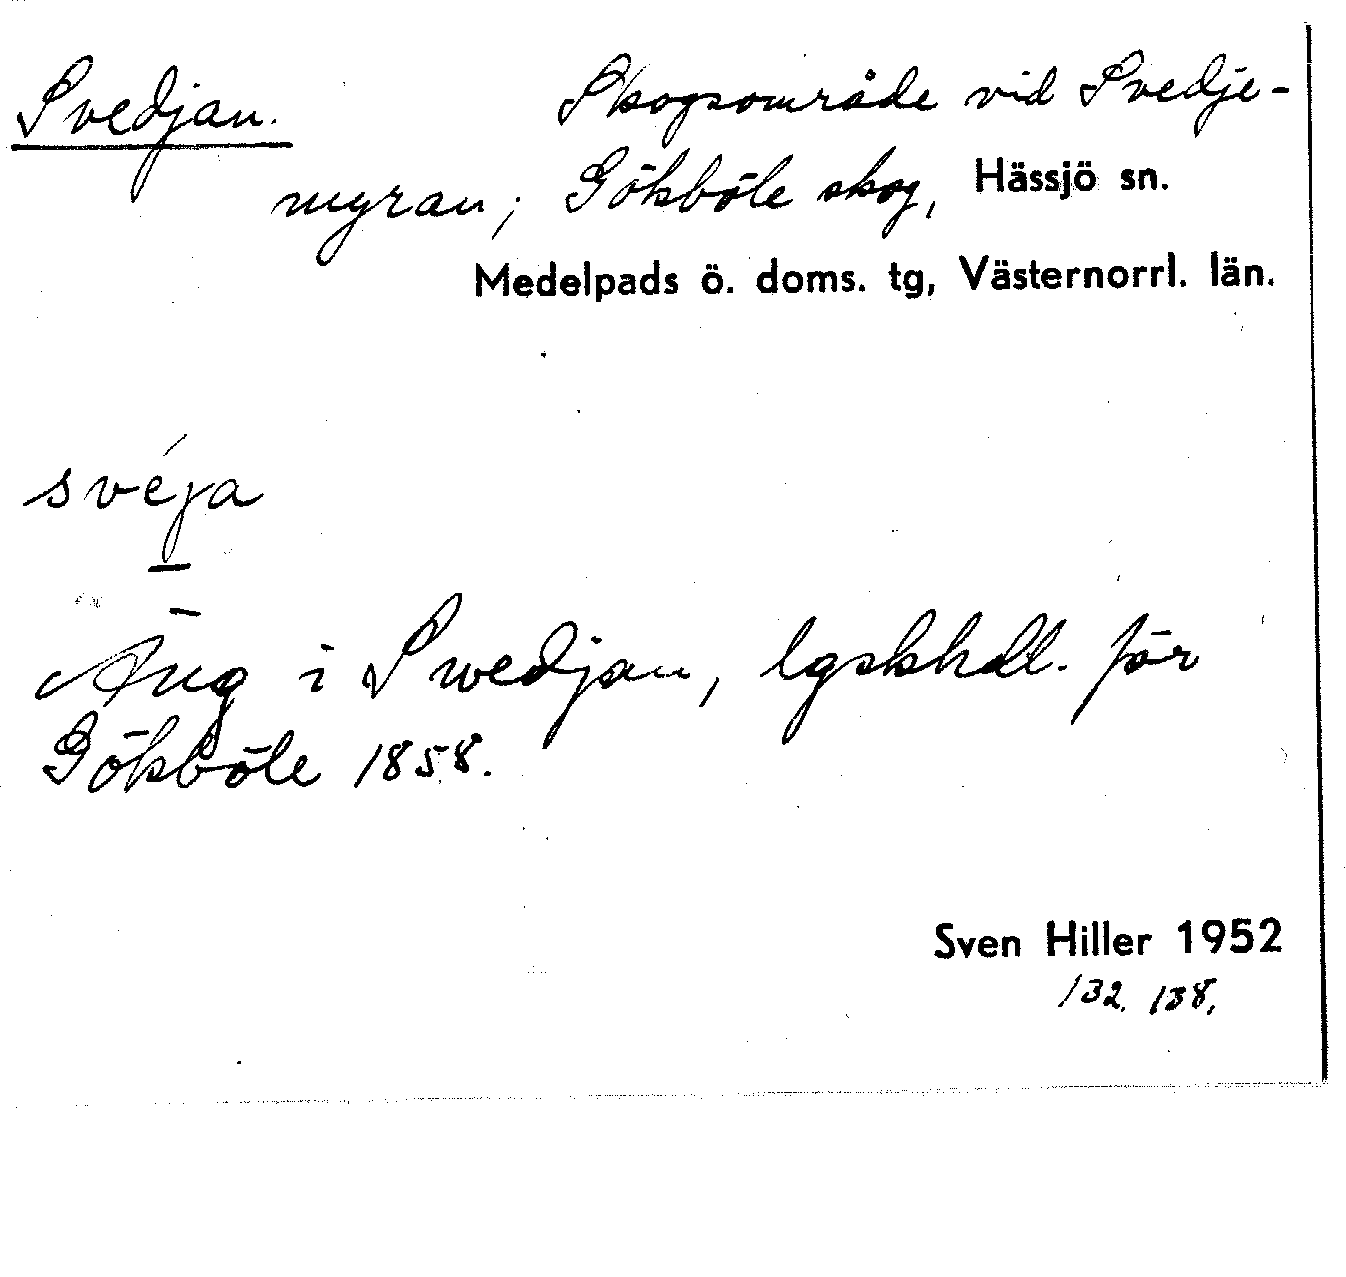 Svedjan. Skogsområde vid Svedje-
myran; Gökböle skog, Hässjö sn.
Medelpads ö. doms. tg, Västernorrl. län.
svéja
Äng i Swedjan, lgskhdl. för
Gökböle 1858.
Sven Hiller 1952
132. 138.